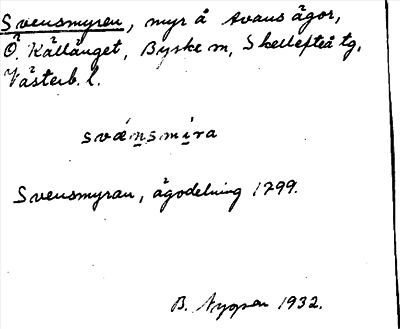 Svensmyran, myr å Avans ägor,
Ö. Kålånget, Byske sn, Skellefteå tg,
Västerb. l.
svænsmira
Svensmyran, ägodelning 1799.
B. 1932.